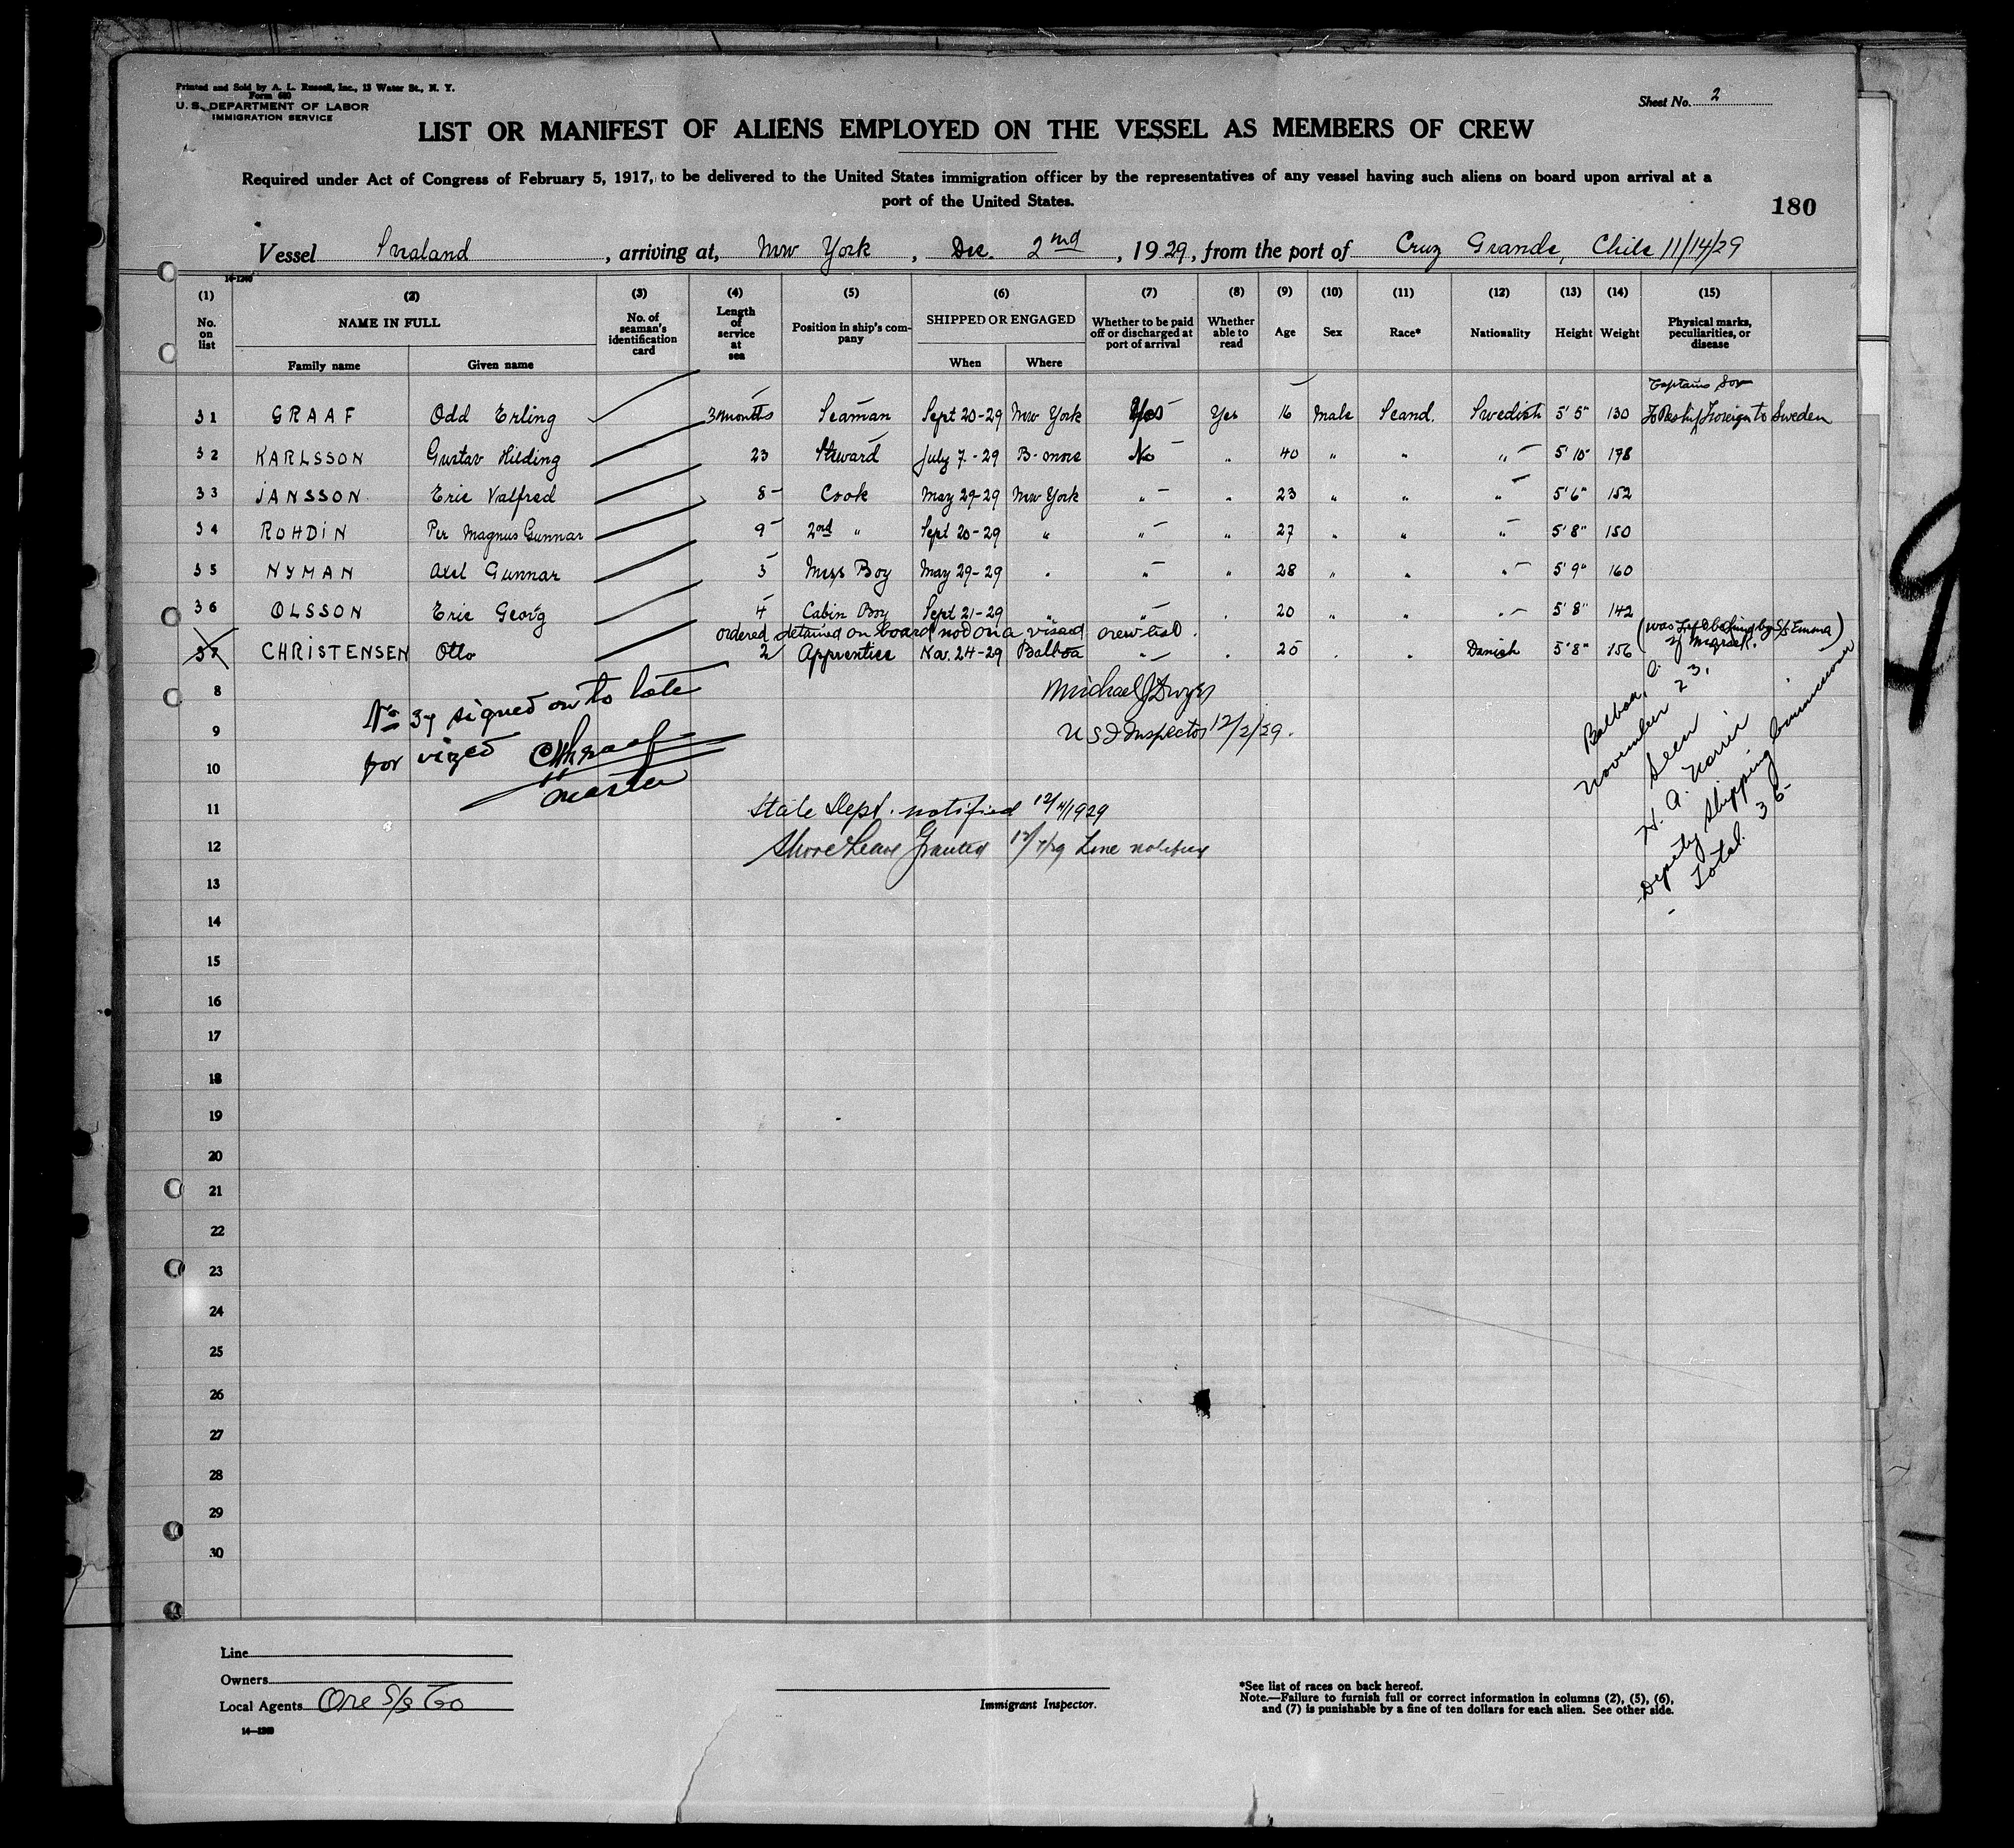 Printed and Sold by A. L. Russell, Inc., 13 Water St., N. Y.
Form 680
U. S. DEPARTMENT OF LABOR
IMMIGRATION SERVICE
Sheet No. 2
LIST OR MANIFEST OF ALIENS EMPLOYED ON THE VESSEL AS MEMBERS OF CREW
Required under Act of Congress of February 5, 1917, to be delivered to the United States immigration officer by the representatives of any vessel having such aliens on board upon arrival at a
port of the United States.
180
Vessel Svealand, arriving at, New York, Dec. 2nd, 1929, from the port of Cruz Grande, Chile 11/14/29
14-1240
(1) (2) (3) (4) (5) (6) (7) (8) (9) (10) (11) (12) (13) (14) (15)
No. on list NAME IN FULL Family name Given name No. of seaman's identification card Length of service at sea Position in ship's company SHIPPED OR ENGAGED When Where Whether to be paid off or discharged at port of arrival Whether able to read Age Sex Race* Nationality Height Weight Physical marks, peculiarities, or disease
Captains Son
31 GRAAF Odd Erling 3 months Seaman Sept 20-29 New York Yes Yes 16 Male Scand. Swedish 5' 5" 130 To Reship Foreign to Sweden
32 KARLSSON Gustav Hilding 23 Steward July 7-29 B-more No " 40 " " " 5' 10" 178
33 JANSSON Eric Valfred 8 Cook May 29-29 New York " " 23 " " " 5' 6" 152
34 ROHDIN Per Magnus Gunnar 9 2nd " Sept 20-29 " " " 27 " " " 5' 8" 150
35 NYMAN Axel Gunnar 3 Mess Boy May 29-29 " " " 28 " " " 5' 9" 160
36 OLSSON Eric Georg 4 Cabin Boy Sept 21-29 " " " 20 " " " 5' 8" 142
ordered detained on board not on a visaed crew list. (was left behind by S/S Emma
37 CHRISTENSEN Otto 2 Apprentice Nov. 24-29 Balboa " " 25 " " Danish 5' 8" 156
8
9
10
11
12
13
14
15
16
17
18
19
20
21
22
23
24
25
26
27
28
29
30
No 37 signed on to late
for vized
Master
Michael J Dwyer
U S I Inspector 12/2/29.
State Dept. notified 12/4/1929
Shore Leave Granted Line notified
Balboa, C. Z.
November 23,
Seen
H. A.
Deputy Shipping Commissioner
Total. 36
Line
Owners
Local Agents Ore S/S Co
14-1240
Immigrant Inspector.
*See list of races on back hereof.
Note.—Failure to furnish full or correct information in columns (2), (5), (6),
and (7) is punishable by a fine of ten dollars for each alien. See other side.